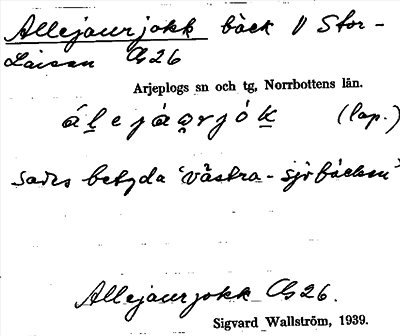 Allejaurjokk bäck V Stor-
Laisan Cs 26
Arjeplogs sn och tg, Norrbottens län.
áḻejáa̭rjóḵ (lap.)
sades betyda 'västra-sjöbäcken'
Allejaurjokk Cs 26.
Sigvard Wallström, 1939.